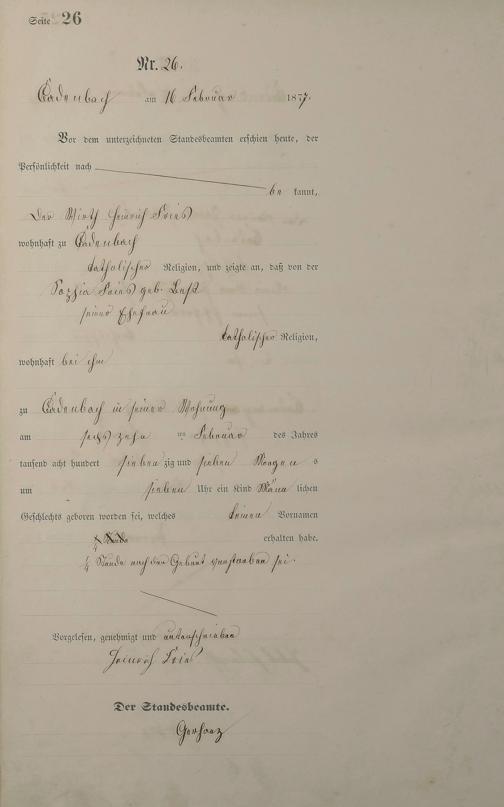 Seite 26
Nr. 26.
Cadenbach am 16 Februar 1877.
Vor dem unterzeichneten Standesbeamten erschien heute, der
Persönlichkeit nach
be kannt,
der Wirth Heinrich Fries
wohnhaft zu Cadenbach
katholischer Religion, und zeigte an, daß von der
Sophia Fries geb.
seiner Ehefrau
katholischer Religion,
wohnhaft bei ihm
zu Cadenbach in seiner Wohnung
am sechszehn ten Februar des Jahres
tausend acht hundert sieben zig und sieben Morgen s
um sieben Uhr ein Kind Männ lichen
Geschlechts geboren worden sei, welches keinen Vornamen
erhalten habe.
1/4 Stunde nach der Geburt verstorben sei.
Vorgelesen, genehmigt und unterschrieben
Heinrich Fries
Der Standesbeamte.
Gerharz